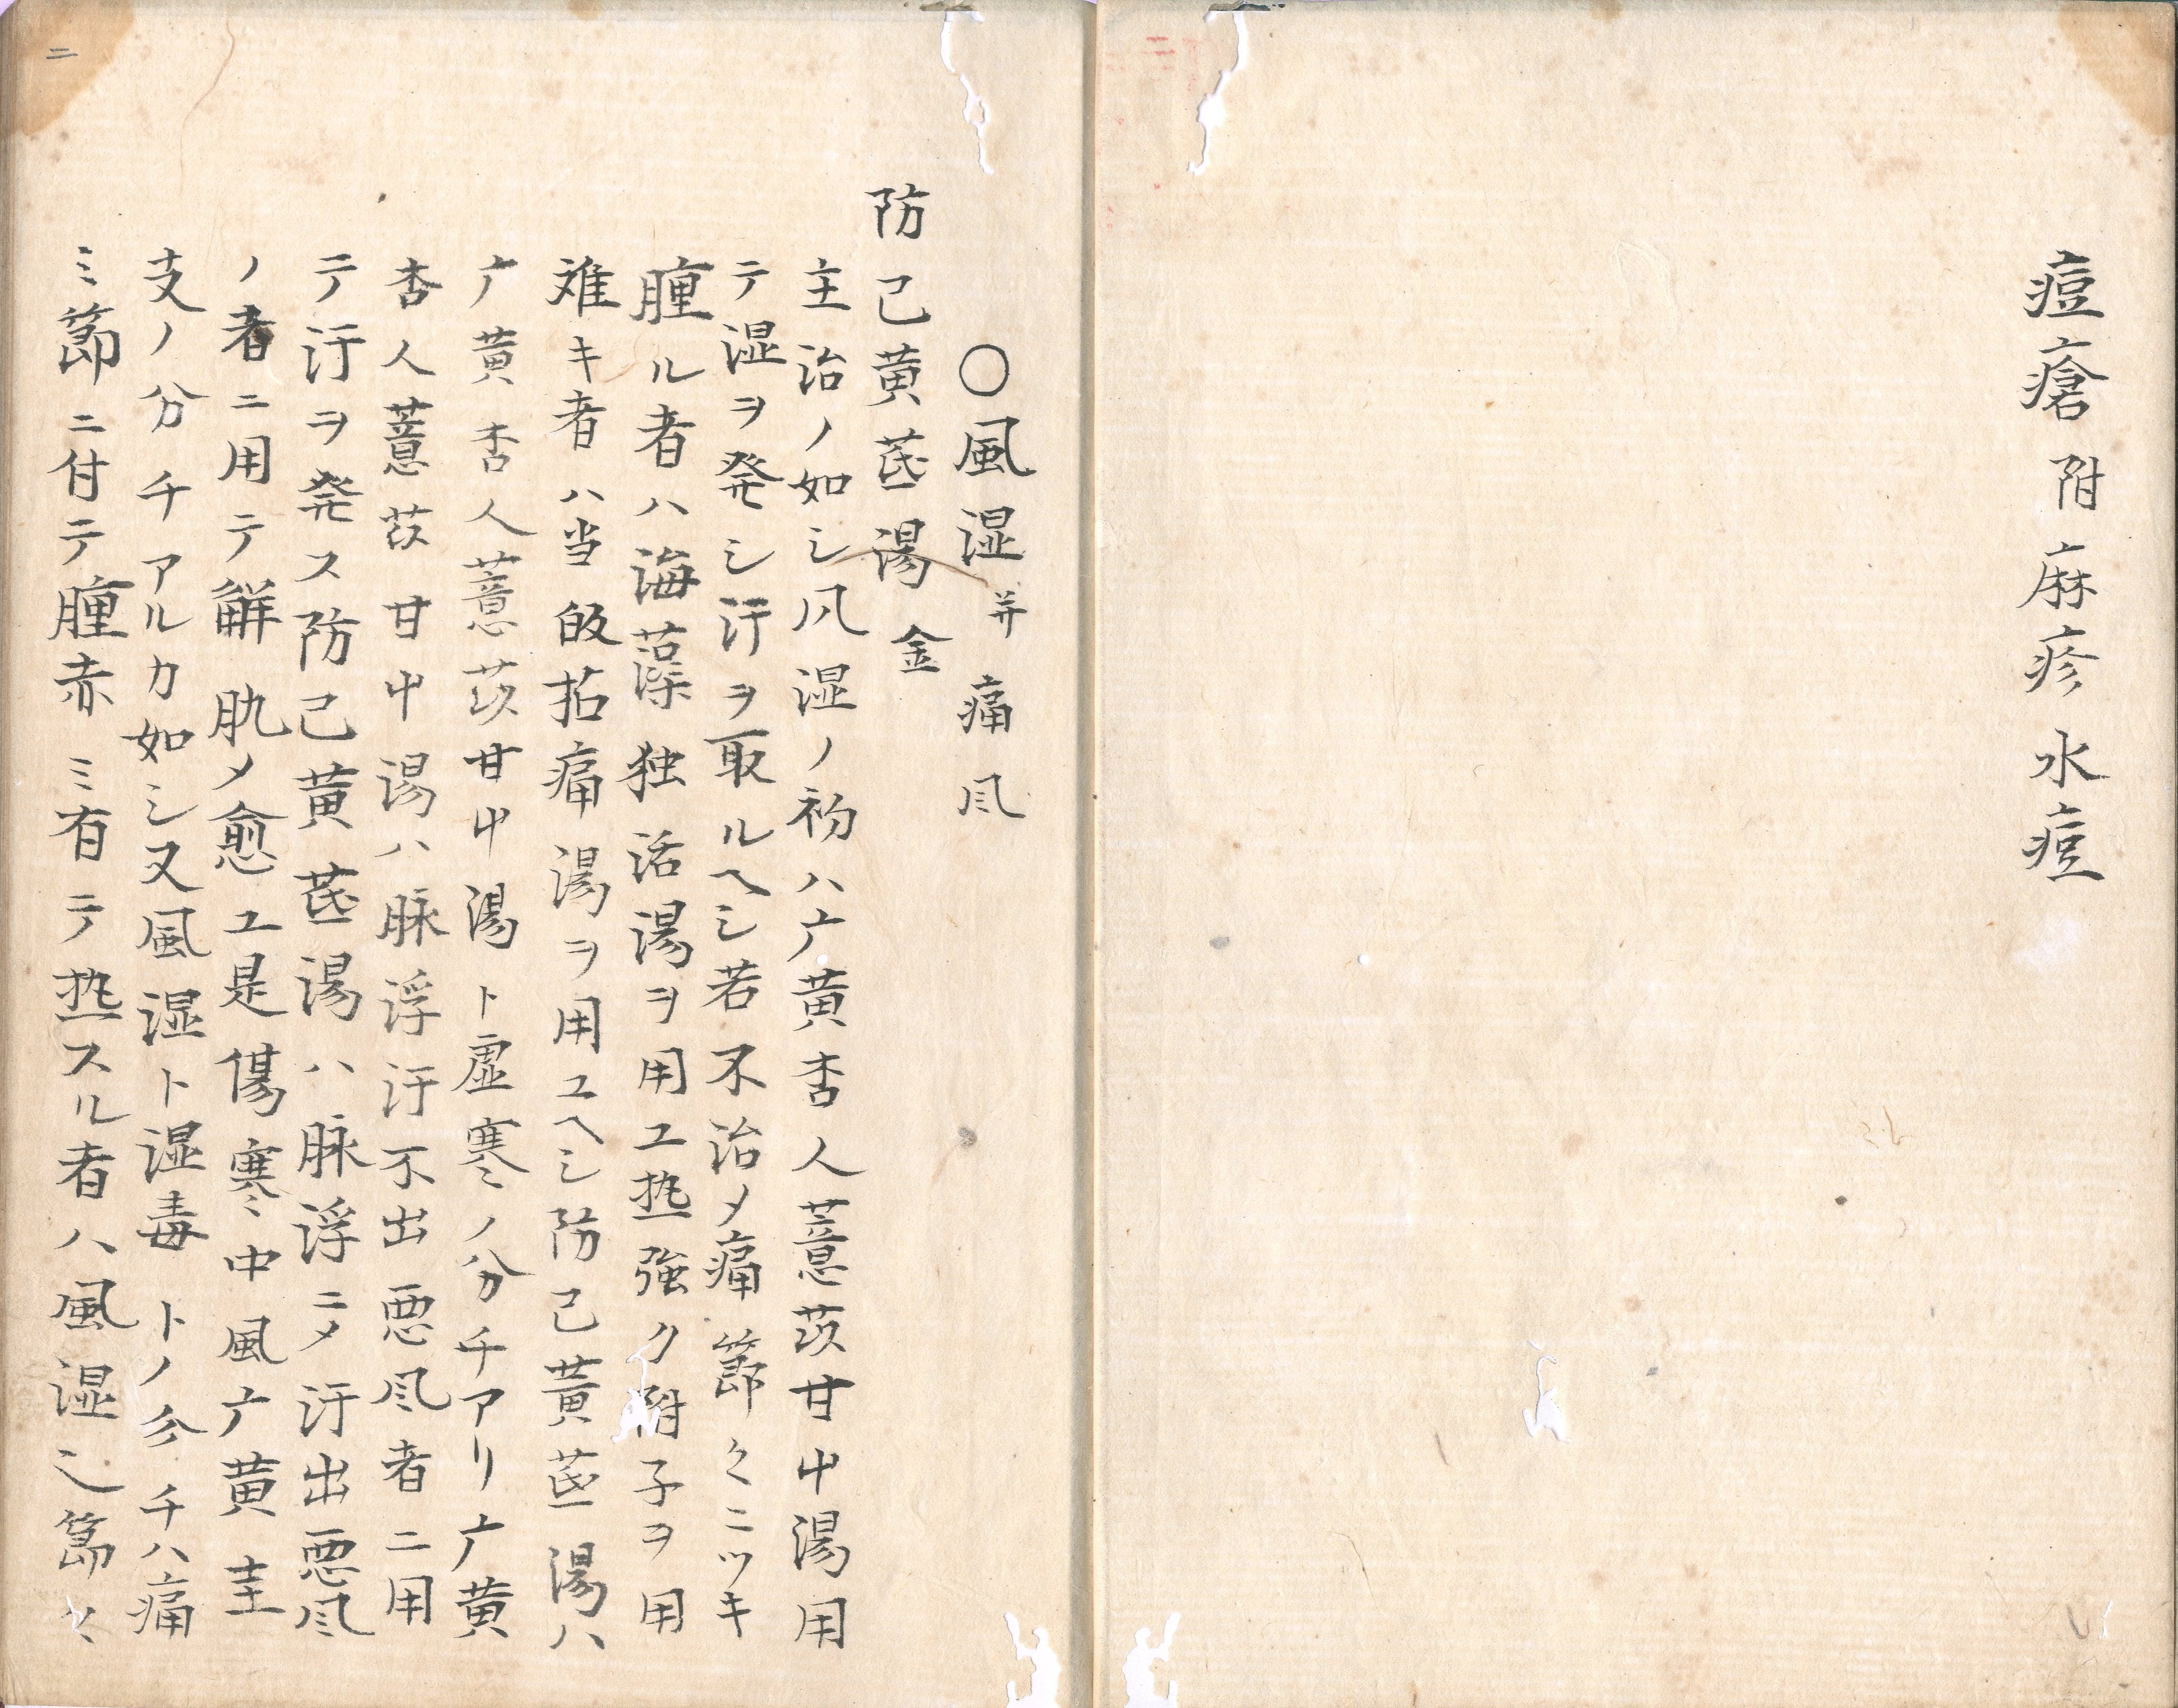 痘瘡附麻疹水痘
○風湿并痛风
防己黄茋湯金
主治ノ如シ凡湿ノ初ハ广黄杏人薏苡甘中湯用
テ湿ヲ発シ汗ヲ取ルヘシ若不治メ痛節々ニツキ
腫ル者ハ海藻独活湯ヲ用ユ热強ク附子ヲ用
难キ者ハ当皈拈痛湯ヲ用ユヘシ防己黄茋湯ハ
广黄杏人薏苡甘中湯ト虚寒ノ分チアリ广黄
杏人薏苡甘中湯ハ脉浮汗不出悪风者ニ用
テ汗ヲ発ス防己黄茋湯ハ脉浮ニメ汗出悪风
ノ者ニ用テ觧肌メ愈ユ是傷寒中風广黄圭
支ノ分チアルカ如シ又風湿ト湿毒トノ分チハ痛
ミ節ニ付テ腫赤ミ有テ热スル者ハ風湿也節々
二